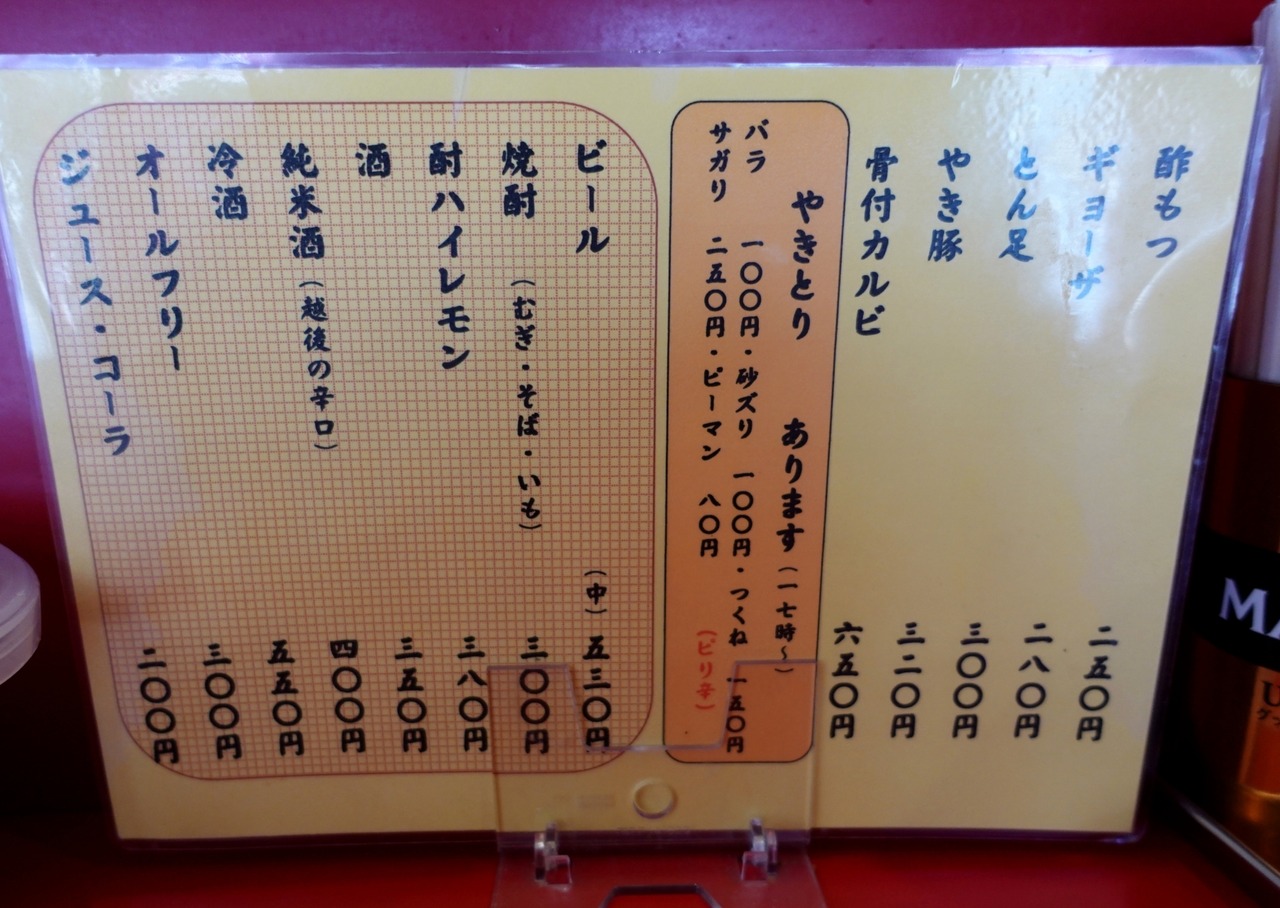 酢もつ 二五〇円
ギョーザ 二八〇円
とん足 三〇〇円
やき豚 三二〇円
骨付カルビ 六五〇円
やきとり あります（一七時～）
バラ 一〇〇円・砂ズリ 一〇〇円・つくね 一五〇円
サガリ 二五〇円・ピーマン 八〇円（ピリ辛）
ビール （中）五三〇円
焼酎 （むぎ・そば・いも） 三〇〇円
酎ハイレモン 三八〇円
酒 三五〇円
純米酒（越後の辛口） 四〇〇円
冷酒 五五〇円
オールフリー 三〇〇円
ジュース・コーラ 二〇〇円
MA